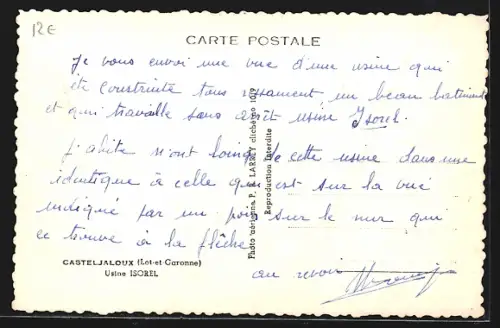 12€
CARTE POSTALE
Je vous envoi une vue d'une usine qui
été construite tous récament un beau batiment
et qui travaille sans arêt usine Isorel.
J'abite non loing de cette usine dans une
identique à celle qui est sur la vue
indiqué par un point sur le mur qui
ce trouve à la flêche
Photo aérienne P. LARREY cliché no 1092
Reproduction Interdite
CASTELJALOUX (Lot-et-Garonne)
Usine ISOREL
au revoir